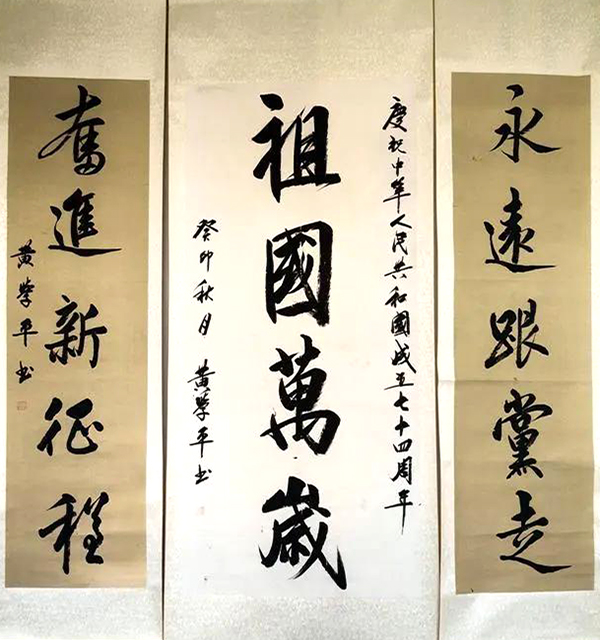 永遠跟黨走
慶祝中華人民共和國成立七十四周年
祖國萬歲
癸卯秋月 黄學平书
奮進新征程
黄學平书